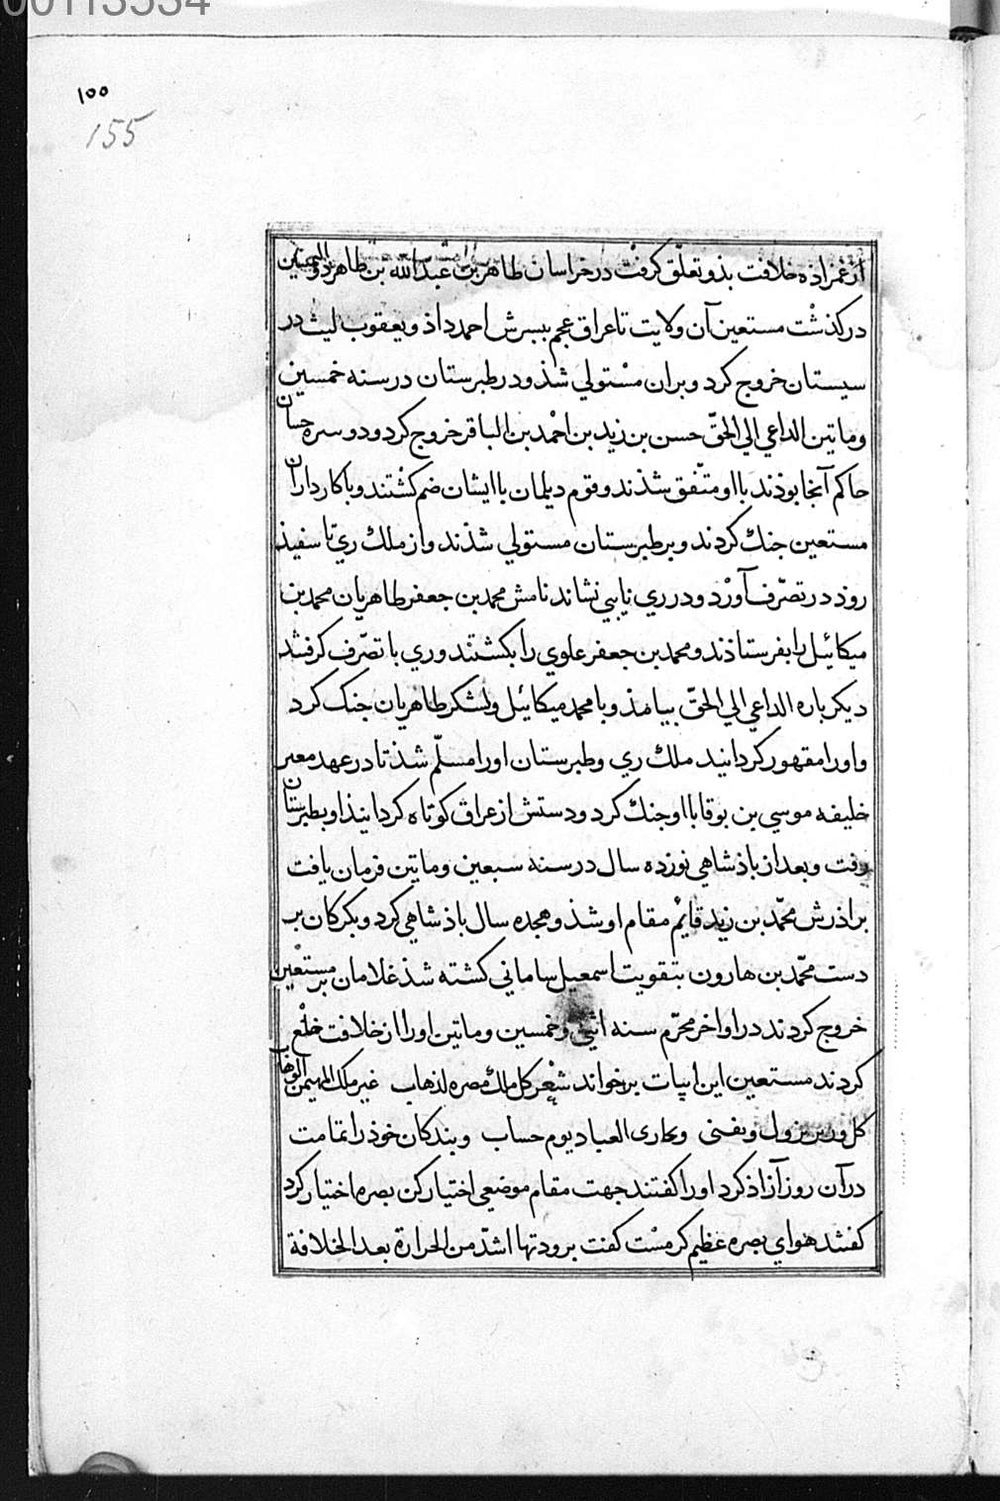 00113534
١٥٥
155
ازعمزاذه خلافت بذو تعلّق كرفت در خراسان طاهر بن عبدالله بن طاهر ذواليمينين
دركذشت مستعين آن ولايت تا عراق عجم ببسرش احمد داذ و يعقوب ليث در
سيستان خروج كرد و بران مستولي شذ و در طبرستان در سنه خمسين
وماتين الداعي الي الحقّ حسن بن زيد بن احمد بن الباقر خروج كرد و دو سره حسان
حاكم آنجا بوذند با او متّفق شذند و قوم ديلمان با ايشان ضم كشتند و با كارداران
مستعين جنك كردند و بر طبرستان مستولي شذند و از ملك ري تا سفيذ
روذ در تصرّف آورد و در ري نايبي نشاند نامش محمد بن جعفر طاهريان محمد بن
ميكائيل را بفرستاذند و محمد بن جعفر علوي را بكشتند و ري با تصرّف كرفتند
ديكر باره الداعي الي الحقّ بيامذ و با محمد ميكائيل و لشكر طاهريان جنك كرد
و او را مقهور كردانيد ملك ري و طبرستان او را مسلّم شذ تا در عهد معتز
خليفه موسي بن بوقا با او جنك كرد و دستش از عراق كوتاه كردانيذ او بطبرستان
رفت و بعد از باذشاهي نوزده سال در سنه سبعين وماتين فرمان يافت
براذرش محمّد بن زيد قايم مقام او شذ و هجده سال باذشاهي كرد و بكركان بر
دست محمّد بن هارون بتقويت اسمعيل ساماني كشته شذ غلامان بر مستعين
خروج كردند در اواخر محرّم سنه اثني وخمسين وماتين او را از خلافت خلع
كردند مستعين اين ابيات برخواند شعر كل ملك مصره لذهاب غير ملك المهيمن الوهاب
كل و يزول و يفنى ويجازى العباد يوم حساب و بندكان خوذ را تمامت
در آن روز آزاذ كرد او را كفتند جهت مقام موضعي اختيار كن بصره اختيار كرد
كفتند هواي بصره عظيم كرمست كفت برودتها اشدّ من الحرارة بعد الخلافة